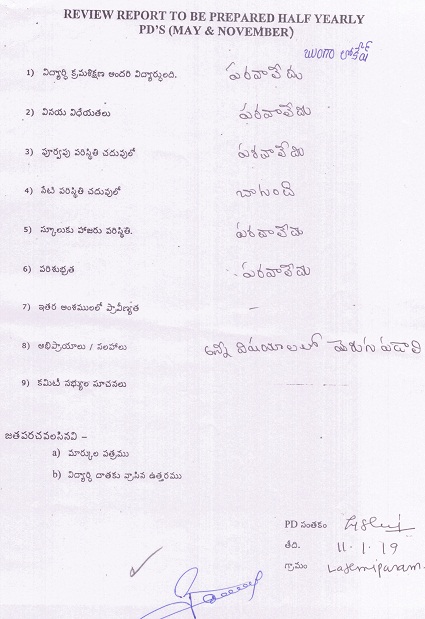 REVIEW REPORT TO BE PREPARED HALF YEARLY
PD'S (MAY & NOVEMBER)
బుంగా లోకేష్
1) విద్యార్థి క్రమశిక్షణ అందరి విద్యార్థులది. పరవాలేదు
2) వినయ విధేయతలు పరవాలేదు
3) పూర్వపు పరిస్థితి చదువులో పరవాలేదు
4) నేటి పరిస్థితి చదువులో బాగుంది
5) స్కూలుకు హాజరు పరిస్థితి. పరవాలేదు
6) పరిశుభ్రత పరవాలేదు
7) ఇతర అంశములలో ప్రావీణ్యత –
8) అభిప్రాయాలు / సలహాలు అన్ని విషయాలలో మెరుగు పడాలి
9) కమిటీ సభ్యుల సూచనలు
జతపరచవలసినవి –
a) మార్కుల పత్రము
b) విద్యార్థి దాతకు వ్రాసిన ఉత్తరము
PD సంతకం
తేది. 11.1.19
గ్రామం Laxmipuram.